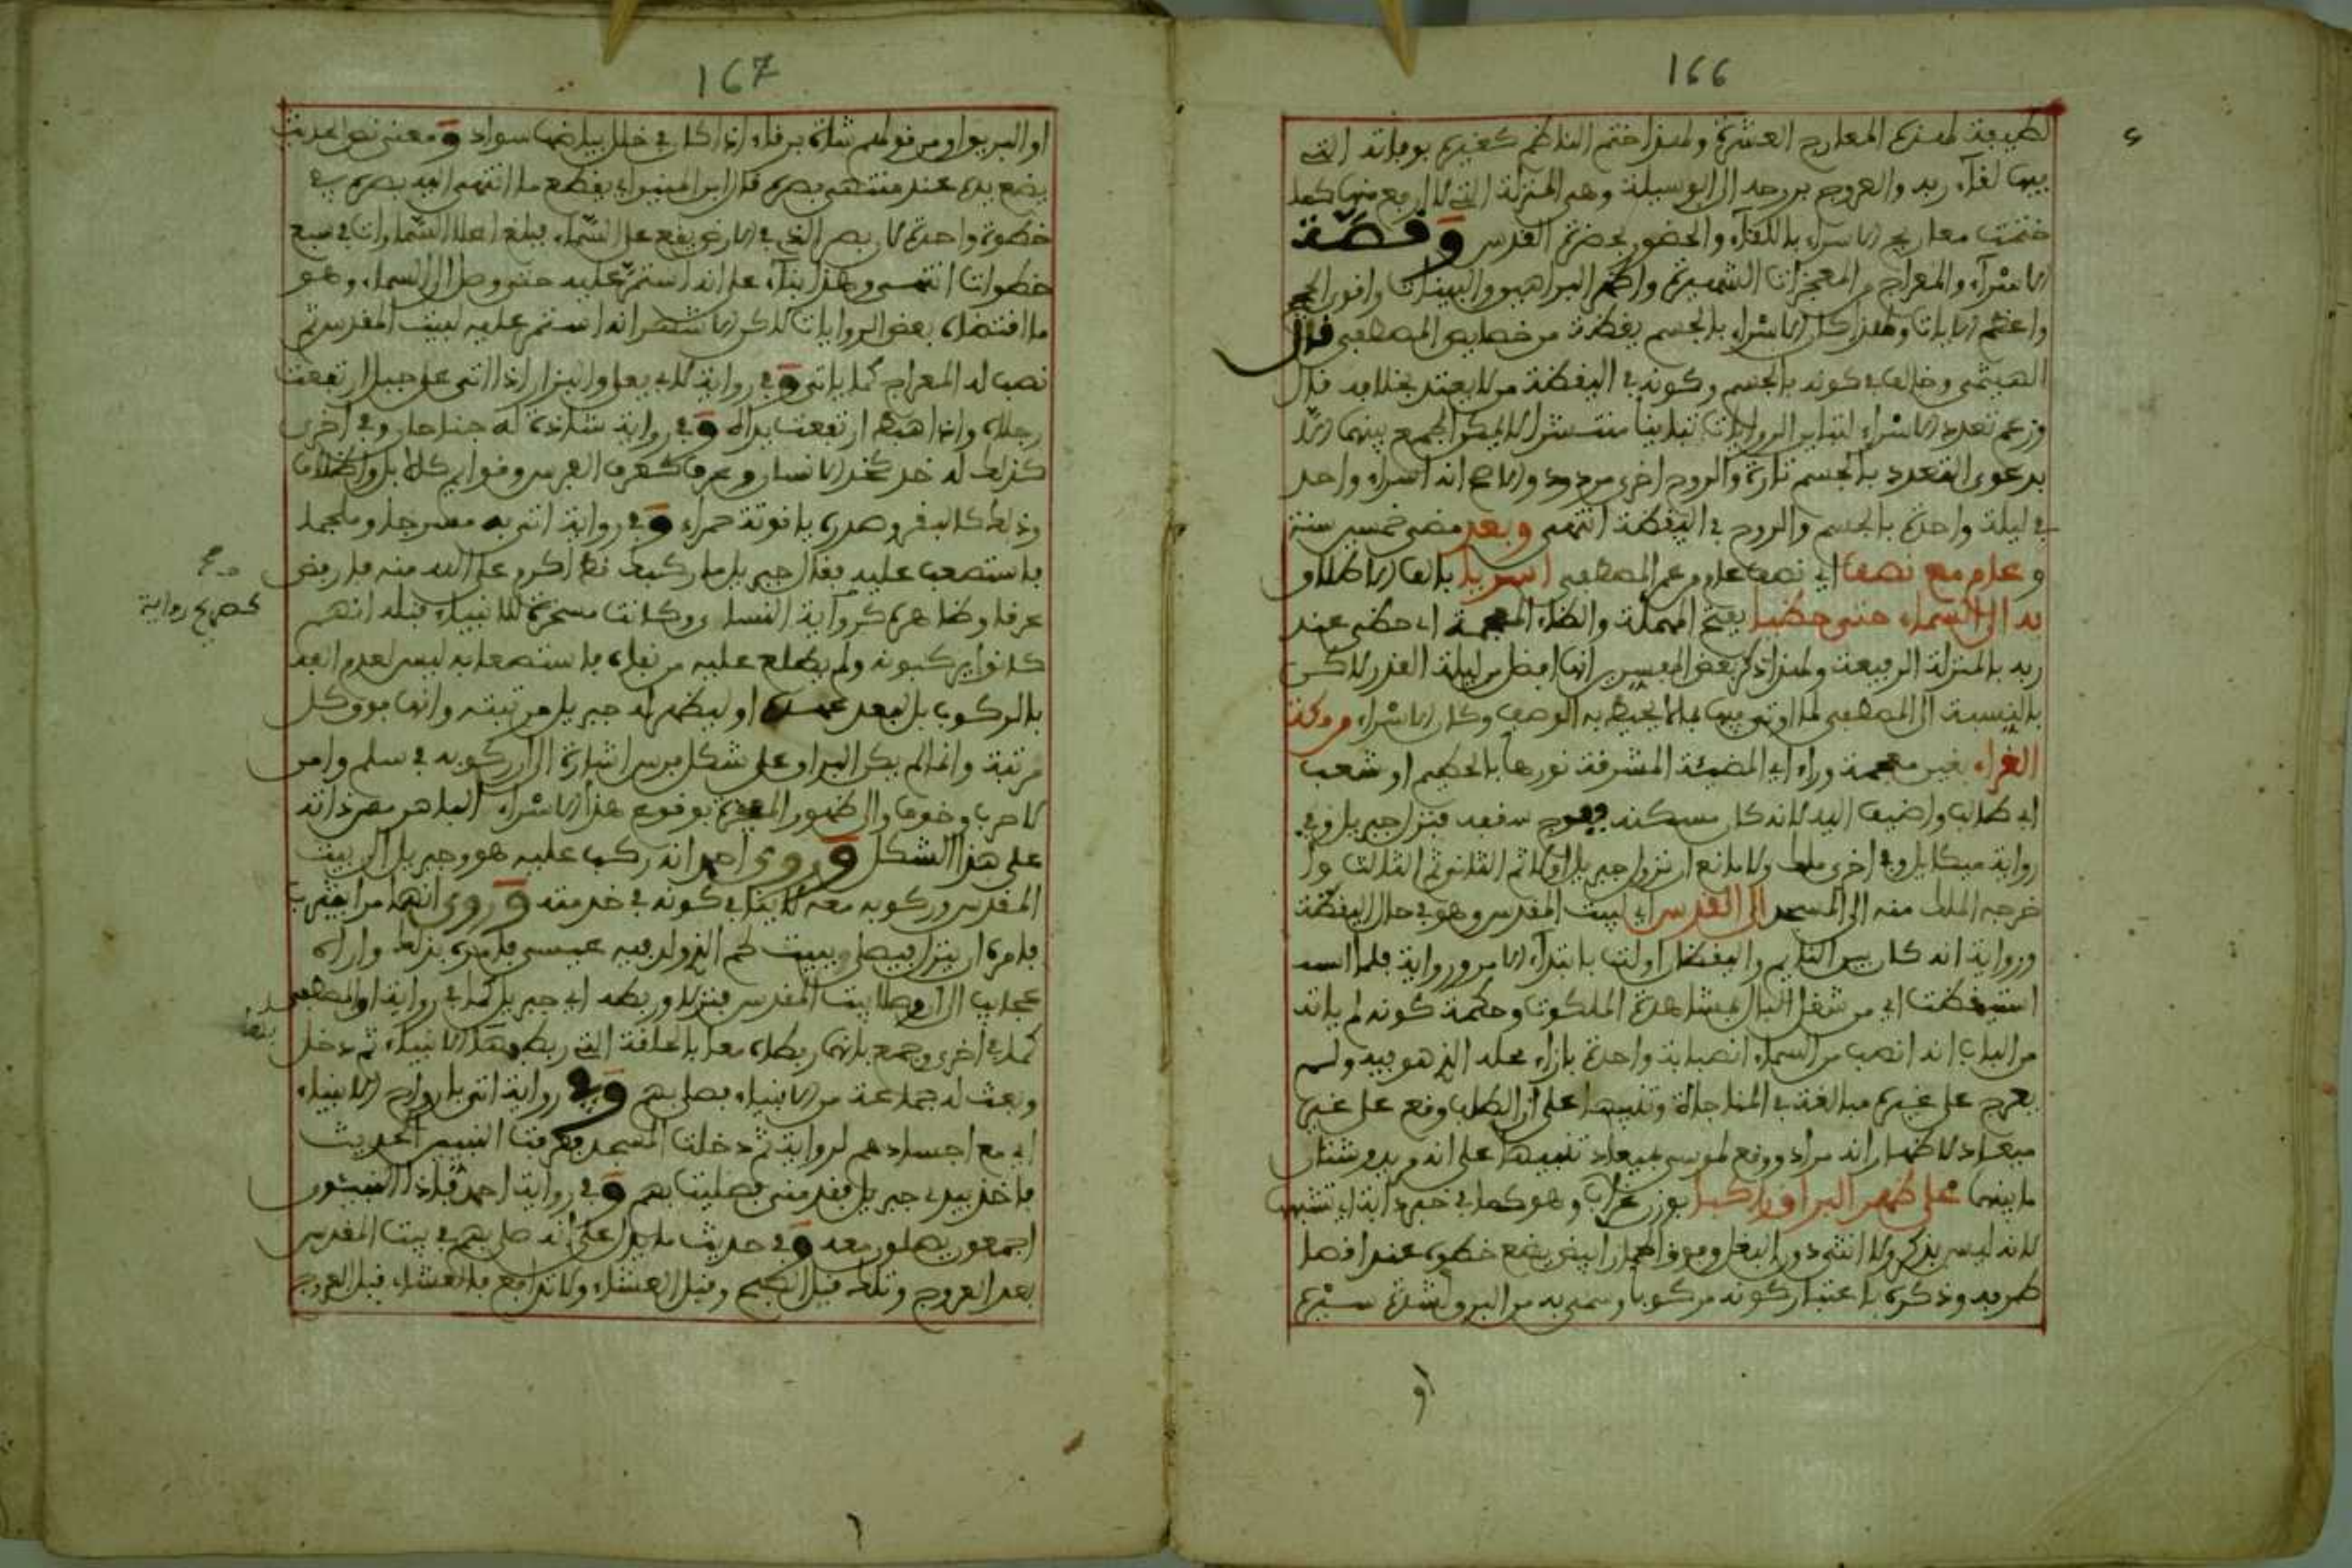 166
لطيفة لهذه المعارج العشرة ولهذا ختم الناظم كغيره بوفاته التي
فيها لقاء ربه والعروج بروحه الى الوسيلة وهي المنزلة التي لا ارفع منها كما
ختمت معاريج الاسراء باللقاء والحضور بحضرة القدس وقصة
الاسراء والمعراج من المعجزات الشهيرة واظهر البراهين والبينات واقوى الحجج
واعظم الايات ولهذا كان الاسراء بالجسم يقظة من خصايص المصطفى قال
الهيتمي وخالف في كونه بالجسم وكونه في اليقظة من لا يعتد بخلافه قال
وزعم تعدد الاسراء لتباين الروايات تباينا منتشرا لا يمكن الجمع بينها الا
بدعوى التعدد بالجسم تارة والروح اخرى مردود والاصح انه اسراء واحد
في ليلة واحدة بالجسم والروح في اليقظة انتهى وبعد مضي خمسين سنة
وعام مع نصف اي نصف عام من عمر المصطفى اسريا بالف الاطلاق
به الى السماء حتى حظيا بفتح المهملة والظاء المعجمة اي حظي عند
ربه بالمنزلة الرفيعة ولهذا ذكر بعض المفسرين انها افضل من ليلة القدر لاكن
بالنسبة الى المصطفى لما اوتي فيها مما لا يحيط به الوصف وكان الاسراء من مكة
الغراء بغين معجمة وراء اي المضيئة المشرقة نورها بالحطيم او شعب
ابي طالب واضيف اليه لانه كان مسكنه ففرج سقفه فنزل جبريل وفي
رواية ميكايل وفي اخرى ملك ولا مانع ان نزول جبريل اولا ثم الثاني ثم الثالث ولا
خرجه الملك منه الى المسجد الى القدس اي لبيت المقدس وهو في حال اليقظة
ورواية انه كان بين النايم واليقظان اولت بابتداء الامر ورواية فلما
استيقظت اي من شغل البال بمشاهدة الملكوت وحكمة كونه لم ياته
من الباب انه انصب من السماء انصبابة واحدة بازاء محله الذي هو فيه ولم
يعرج على غيره مبالغة في المفاجاة وتنبيها على ان الطلب وقع على غير
ميعاد لاظهار انه مراد ووقع لموسى بميعاد تنبيها على انه مريد وشتان
ما بينها على ظهر البراق راكبا بوزن غراب وهو كما في خبر دابة اي تشبهها
لانه ليس بذكر ولا انثى دون البغل وفوق الحمار ابيض يضع خطوه عند اقصا
طرفه وذكره باعتبار كونه مركوبا وسمي به من البرق لشدة سيره
او
167
او البريق او من قولهم شاة برقاء اذا كان في خلل بياضها سواد ومعنى نص الحديث
يضع يده عند منتهى بصره قال ابن المنير اي يقطع ما انتهى اليه بصره في
خطوة واحدة لان بصر الذي في الارض يقع على السماء فبلغ اعلا السماوات في سبع
خطوات انتهى وهذا بناء على انه استمر عليه حتى وصل الى السماء وهو
ما اقتضاه بعض الروايات لاكن الاشهر انه استمر عليه لبيت المقدس ثم
نصب له المعراج كما ياتي وفي رواية لابي يعلى والبزار اذا اتى على جبل ارتفعت
رجلاه واذا هبط ارتفعت يداه وفي رواية شاذة له جناحان وفي اخرى
كذلك له خد كخد الانسان وعرف كعرف الفرس وقوايم كالابل واظلاف
وذنب كالبقر وصدره ياقوتة حمراء وفي رواية اتى به مسرجا وملجما
فاستصعب عليه فقال جبريل ما ركبك قط اكرم على الله منه فارفض
عرقا وظاهره كرواية النسائي وكانت مسخرة للانبياء قبله انهم
كانوا يركبونه ولم يطلع عليه من نفاه فاستصعابه ليس لعدم الفه
بالركوب بل لبعد عهده او ليظهر له جبريل مرتبته وانها فوق كل
مرتبة وانما لم يكن البراق على شكل فرس اشارة الى ان ركوبه في سلم وامن
لا حرب وخوف والى ظهور المعجزة بوقوع هذا الاسراء الباهر من دابة
على هذا الشكل وروى احمد انه ركب عليه هو وجبريل الى بيت
المقدس وركوبه معه لا ينافي كونه في خدمته وروي انهما مرا بيثرب
فامره ان ينزل فيصلي وببيت لحم الذي ولد فيه عيسى فامره بذلك واراه
عجايب الى ان وصلا بيت المقدس فنزلا وربطه اي جبريل كما في رواية او المصطفى
كما في اخرى وجمع بانهما ربطاه معا بالحلقة التي ربط بها الانبياء ثم دخل
وبعث له جماعة من الانبياء فصلى بهم وفي رواية اتى بارواح الانبياء
اي مع اجسادهم لرواية ثم دخلت المسجد فعرفت النبيين الحديث
فاخذ بيدي جبريل فقدمني فصليت بهم وفي رواية احمد فاذا النبيئون
اجمعون يصلون معه وفي حديث ما يدل على انه صلى بهم في بيت المقدس
بعد العروج وتلك قبل الصبح وقبل العشاء ولا تدافع فالعشاء قبل العروج
كصريح رواية